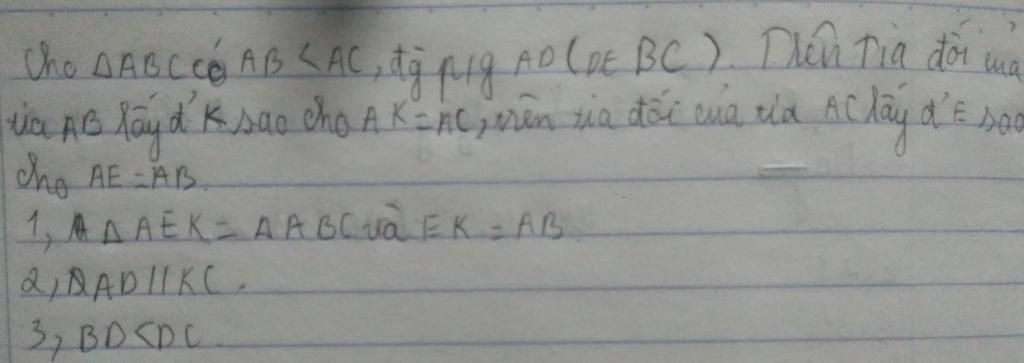 Cho ΔABC có AB < AC, đg p/g AD (D∈ BC). Trên Tia đối của
tia AB lấy đ' K sao cho AK = AC, trên tia đối của tia AC lấy đ' E sao
cho AE = AB.
1, ΔAEK = ΔABC và EK = AB
2, AD // KC.
3, BD < DC.